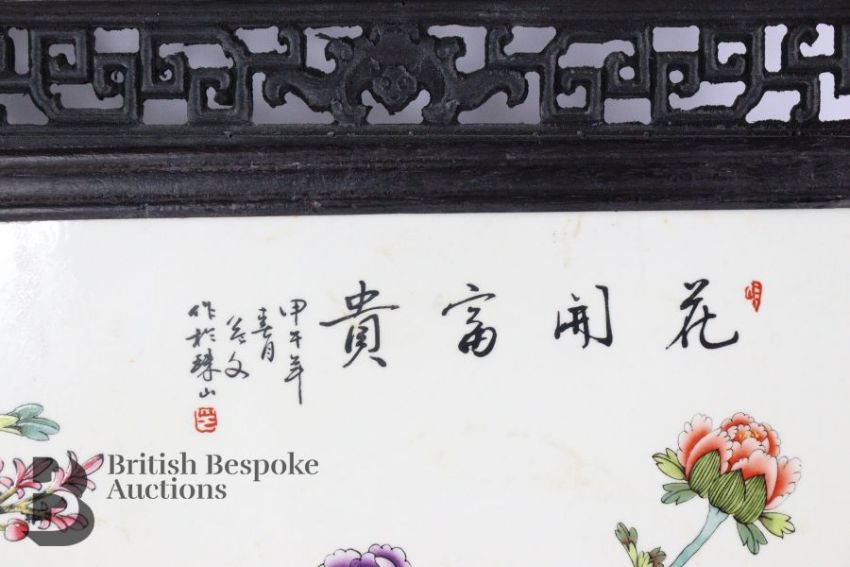 花開富貴
甲午年
春月
益文
作於珠山
British Bespoke
Auctions